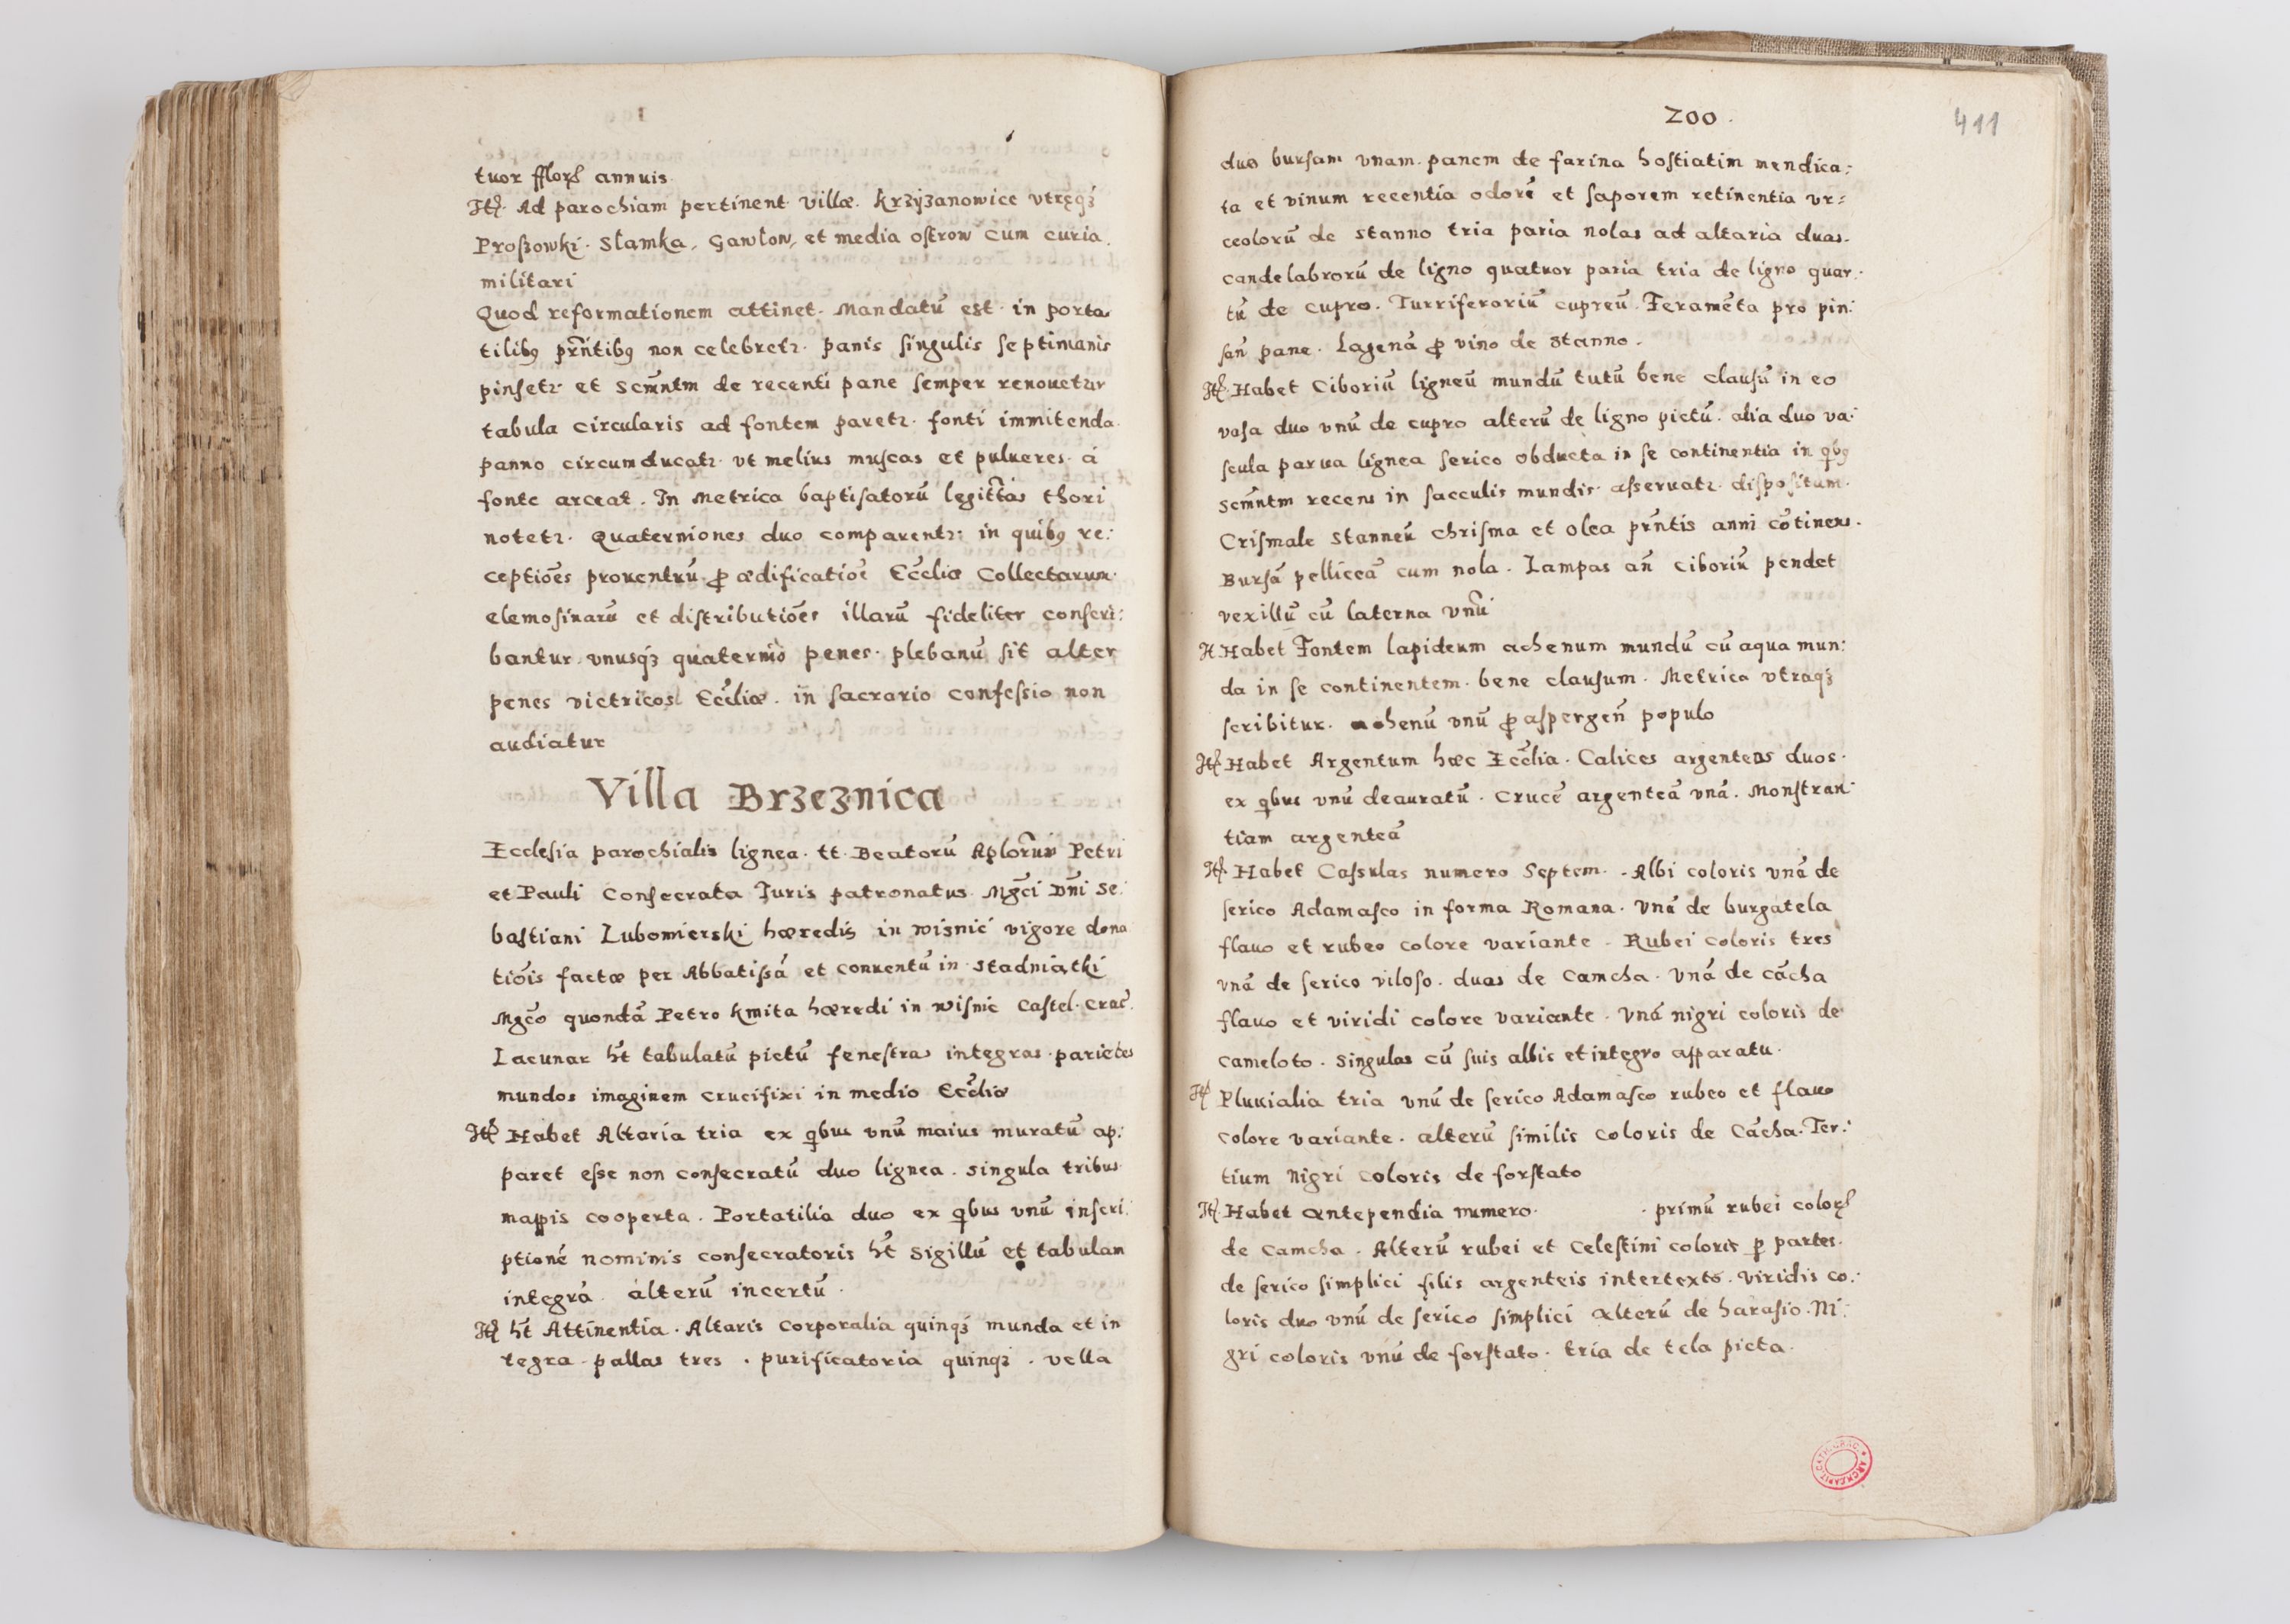 tuor fflorꝭ annuis
Itꝭ. Ad parochiam pertinent villæ. Krzyżanowice vtręqꝫ
Proszowki. Slamka, Gawlow, et media ostrow cum curia
militari
Quod reformationem attinet. Mandatū est. in porta
tilibꝯ prn̄tibꝯ non celebretr. panis singulis septimanis
pinsetr et Scm̄ntm de recenti pane semper renouetur
tabula circularis ad fontem paretr. fonti immitenda
panno circumducatr. vt melius muscas et pulueres á
fonte arceat. In Metrica baptisatorū legitt̄as thori
notetr. Quaterniones duo comparentr: in quibꝯ re:
ceptiōes prouentuū ꝓ ædificatiōe Eccl̄iæ Collectarum
elemosinarū et distributiōes illarū fideliter conscri:
bantur vnusqꝫ quaternio penes plebanū sit alter
penes victricos Eccl̄iæ. in sacrario confessio non
audiatur
Villa Brzeznica
Ecclesia parochialis lignea. tt. Beatorū Aplorūm Petri
et Pauli Consecrata Juris patronatus Mgc̄i Dn̄i Se:
bastiani Lubomierski hæredis in Wisnic vigore dona
tiōis factæ per Abbatissā et conuentū in Stadniątki
Mgc̄o quondā Petro Kmita hæredi in Wisnic Castel. Crac̄.
Lacunar ht̄ tabulatū pictū fenestras integras parietes
mundos imaginem crucifixi in medio Eccl̄iæ
Itꝭ Habet Altaria tria ex qbus vnū maius muratū ap:
paret esse non consecratū duo lignea. singula tribus
mappis cooperta. Portatilia duo ex qbus vnū inscri:
ptionē nominis consecratoris ht̄ sigillū et tabulam
integrā. alterū incertū.
Itꝭ ht̄ Attinentia. Altaris Corporalia quinqꝫ munda et in
tegra pallas tres. purificatoria quinqꝫ. vella
200.
411
duo bursam vnam. panem de farina hostiatim mendica:
ta et vinum recentia odorē et saporem retinentia vr:
ceolorū de stanno tria paria nolas ad altaria duas.
candelabrorū de ligno quatuor paria tria de ligno quar:
tū de cupro. Turriferoriū cupreū. Feramēta pro pin:
san̄ pane. Lagenā ꝓ vino de stanno.
Itꝭ. Habet Ciboriū ligneū mundū tutū bene clausū in eo
vasa duo vnū de cupro alterū de ligno pictū. alia duo va:
scula parua lignea serico obducta in se continentia in qibꝯ
scm̄ntm recens in sacculis mundis asseruatr. dispositum.
Crismale stanneū chrisma et olea prn̄tis anni cōtinens.
Bursā pelliceā cum nola. Lampas an̄ ciboriū pendet
vexillū cū laterna vnū
It Habet Fontem lapideum achenum mundū cū aqua mun:
da in se continentem. bene clausum. Metrica vtraqꝫ
scribitur. achenū vnū ꝓ aspergen̄ populo
Itꝭ Habet Argentum hæc Eccl̄ia. Calices argenteos duos.
ex qbus vnū deauratū. crucē argenteā vnā. Monstran:
tiam argenteā
Itꝭ. Habet Cassulas numero Septem. Albi coloris vnā de
serico Adamasco in forma Romana. Vnā de burgatela
flauo et rubeo colore variante. Rubei coloris tres
vnā de serico viloso. duas de Camcha. vnā de cācha
flauo et viridi colore variante. Vnā nigri coloris de
cameloto. singulas cū suis albis et integro apparatu.
Itꝭ Pluuialia tria vnū de serico Adamasco rubeo et flauo
colore variante. alterū similis coloris de Cācha. Ter:
tium nigri coloris de forstato
Itꝭ. Habet Antependia numero. . primū rubei colorꝭ
de camcha. Alterū rubei et celestini coloris ꝑ partes.
de serico simplici filis argenteis intertexto. viridis co:
loris duo vnū de serico simplici alterū de harasio. Ni:
gri coloris vnū de forstato. tria de tela picta.